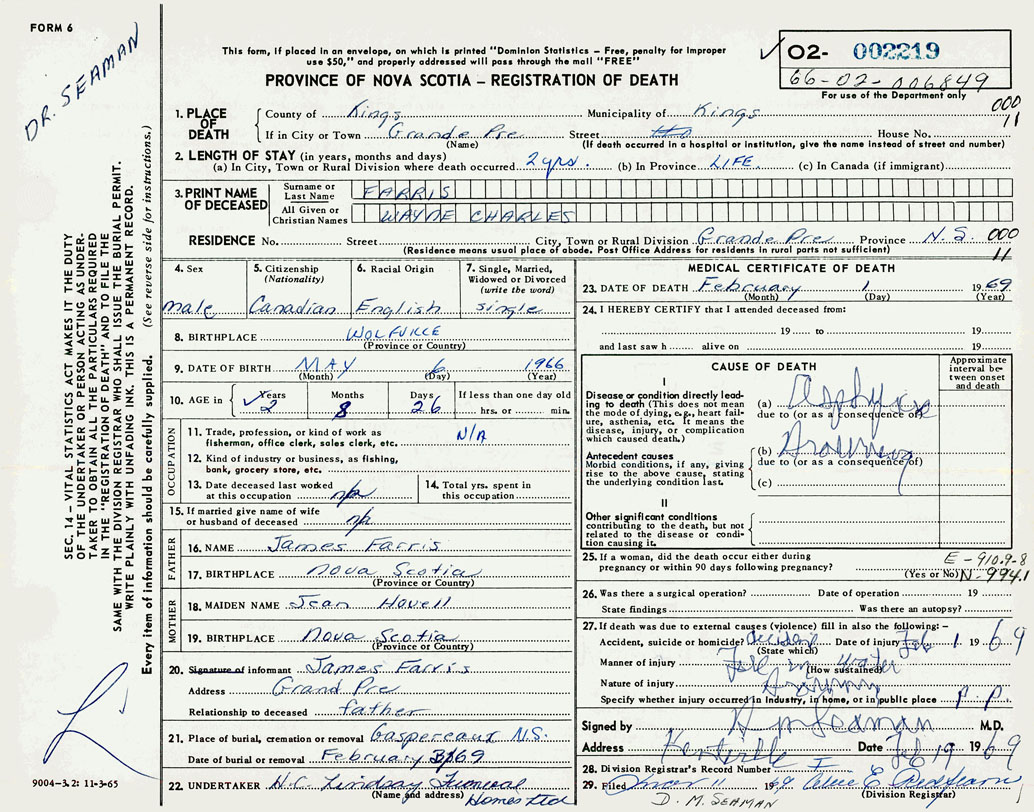 FORM 6
DR. SEAMAN
This form, if placed in an envelope, on which is printed "Dominion Statistics – Free, penalty for improper
use $50," and properly addressed will pass through the mail "FREE"
PROVINCE OF NOVA SCOTIA – REGISTRATION OF DEATH
✓ 02- 002219
66-02-006849
For use of the Department only
000
11
1. PLACE OF DEATH
County of Kings Municipality of Kings
If in City or Town Grande Pre Street House No.
(Name) (If death occurred in a hospital or institution, give the name instead of street and number)
2. LENGTH OF STAY (in years, months and days)
(a) In City, Town or Rural Division where death occurred 2 yrs. (b) In Province LIFE (c) In Canada (if immigrant)
3. PRINT NAME OF DECEASED
Surname or Last Name FARRIS
All Given or Christian Names WAYNE CHARLES
RESIDENCE No. Street City, Town or Rural Division Grande Pre Province N.S. 000
(Residence means usual place of abode. Post Office Address for residents in rural parts not sufficient) 11
4. Sex
male
5. Citizenship
(Nationality)
Canadian
6. Racial Origin
English
7. Single, Married,
Widowed or Divorced
(write the word)
single
8. BIRTHPLACE WOLFVILLE
(Province or Country)
9. DATE OF BIRTH MAY 6 1966
(Month) (Day) (Year)
10. AGE in
Years Months Days If less than one day old
✓ 2 8 26 hrs. or min.
OCCUPATION
11. Trade, profession, or kind of work as N/A
fisherman, office clerk, sales clerk, etc.
12. Kind of industry or business, as fishing,
bank, grocery store, etc.
13. Date deceased last worked
at this occupation n/a
14. Total yrs. spent in
this occupation
15. If married give name of wife
or husband of deceased n/a
FATHER
16. NAME James Farris
17. BIRTHPLACE Nova Scotia
(Province or Country)
MOTHER
18. MAIDEN NAME Jean Hovell
19. BIRTHPLACE Nova Scotia
(Province or Country)
20. Signature of informant James Farris
Address Grand Pre
Relationship to deceased father
21. Place of burial, cremation or removal Gaspereaux N.S.
Date of burial or removal February 3/69
22. UNDERTAKER H.C. Lindsay Funeral
(Name and address) Homes Ltd
MEDICAL CERTIFICATE OF DEATH
23. DATE OF DEATH February 1 1969
(Month) (Day) (Year)
24. I HEREBY CERTIFY that I attended deceased from:
19 to 19
and last saw h alive on 19
CAUSE OF DEATH
Approximate
interval be-
tween onset
and death
I
Disease or condition directly lead-
ing to death (This does not mean
the mode of dying, e.g., heart fail-
ure, asthenia, etc. It means the
disease, injury, or complication
which caused death.)
(a) Asphyxia
due to (or as a consequence of)
Antecedent causes
Morbid conditions, if any, giving
rise to the above cause, stating
the underlying condition last.
(b) Drowning
due to (or as a consequence of)
(c)
II
Other significant conditions
contributing to the death, but not
related to the disease or condi-
tion causing it.
25. If a woman, did the death occur either during
pregnancy or within 90 days following pregnancy?
(Yes or No)
E-910.9-8
N-994.1
26. Was there a surgical operation? Date of operation 19
State findings Was there an autopsy?
27. If death was due to external causes (violence) fill in also the following:–
Accident, suicide or homicide? Accident Date of injury Feb 1 1969
(State which)
Manner of injury Fell in water
(How sustained)
Nature of injury Drowning
Specify whether injury occurred in industry, in home, or in public place P.P.
Signed by D M Seaman M.D.
Address Kentville Date Feb 19 1969
28. Division Registrar's Record Number
29. Filed 11 1969
(Division Registrar)
D. M. SEAMAN
SEC. 14 – VITAL STATISTICS ACT MAKES IT THE DUTY
OF THE UNDERTAKER OR PERSON ACTING AS UNDER-
TAKER TO OBTAIN ALL THE PARTICULARS REQUIRED
IN THE "REGISTRATION OF DEATH" AND TO FILE THE
SAME WITH THE DIVISION REGISTRAR WHO SHALL ISSUE THE BURIAL PERMIT.
WRITE PLAINLY WITH UNFADING INK. THIS IS A PERMANENT RECORD.
Every item of information should be carefully supplied. (See reverse side for instructions.)
9004-3.2: 11-3-65